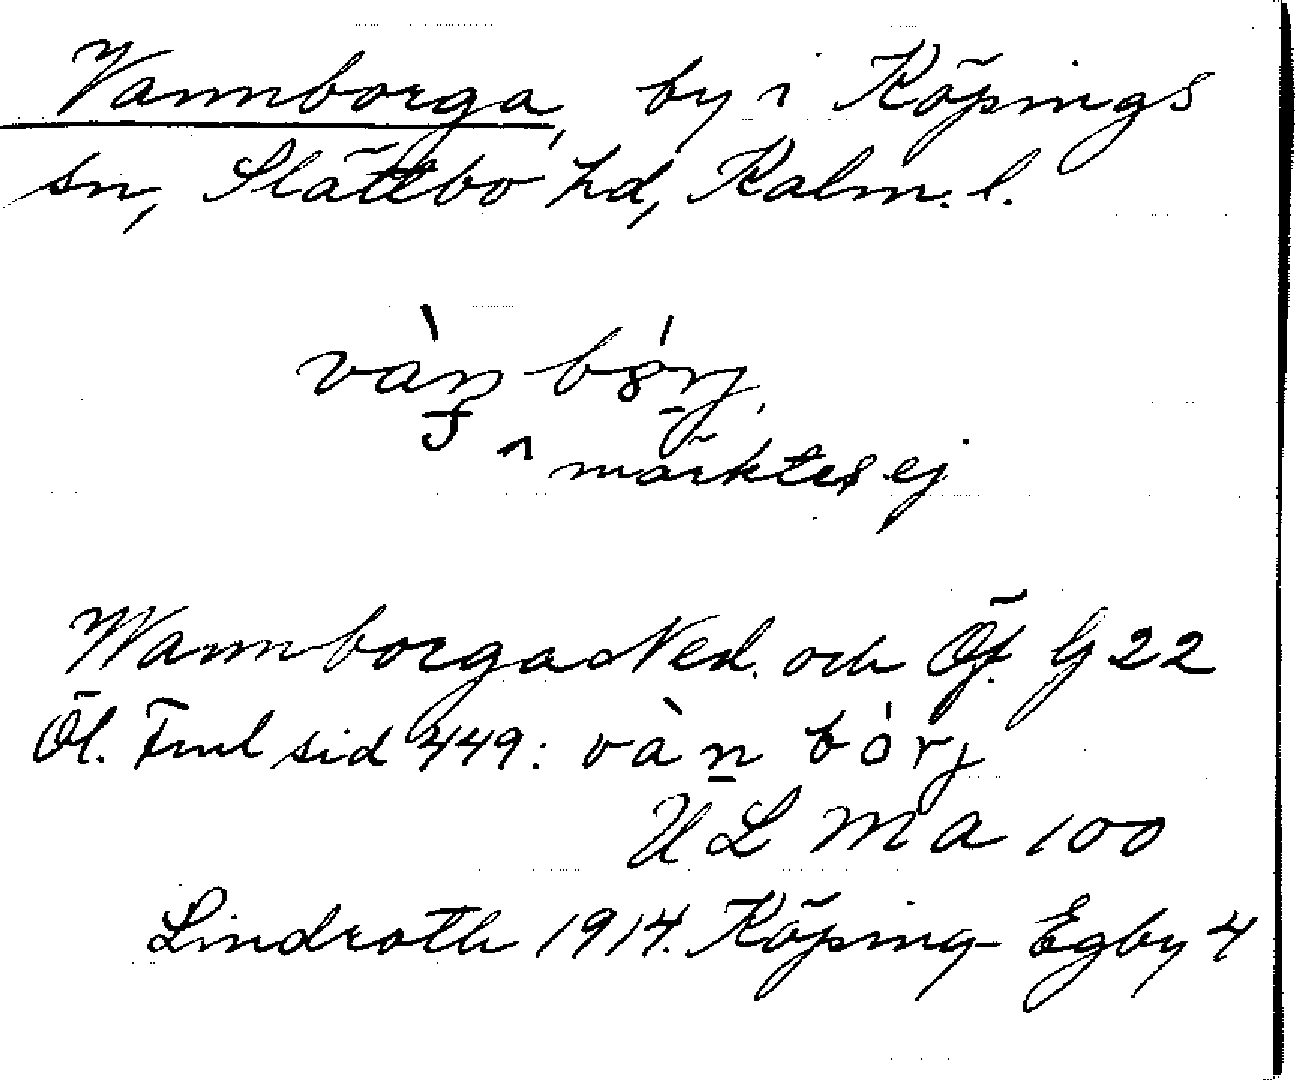 Vannborga, by i Köpings
sn, Slättbo hd, Kalm. l.
vàn bórj,
märktes ej
Wannborga Ned. och Öf. G 22
Öl. Fml sid 449: vàn bórj
ULMA 100
Lindroth 1914. Köping-Egby 4